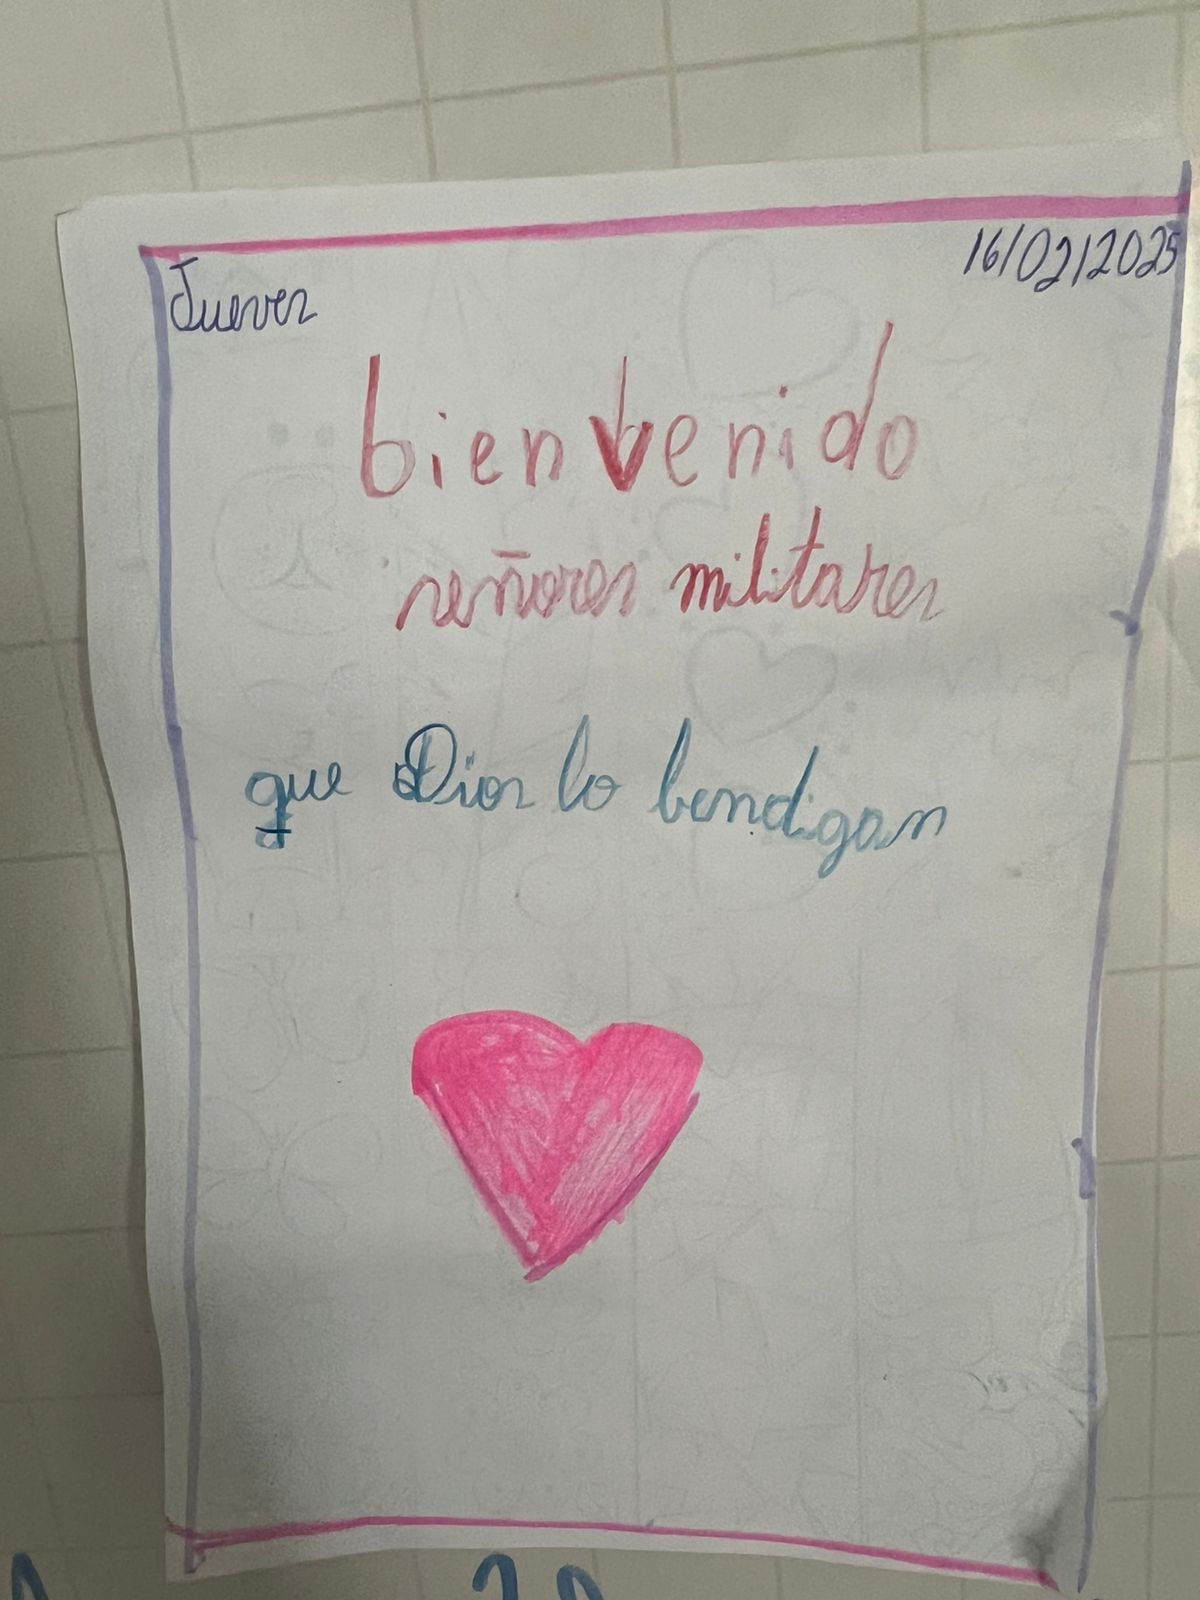 Jueves 16/02/2025
bienvenido
señores militares
que Dios lo bendigan